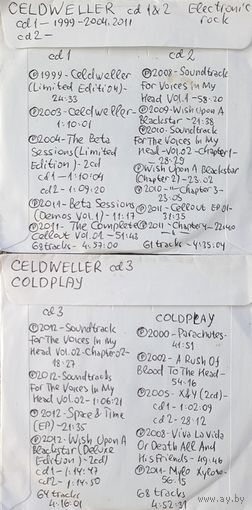 CELDWELLER cd 1&2 Electronic
rock
cd1-1999-2004.2011
cd2-
cd1
℗1999-Celdweller
(Limited Edition)-
24:33
℗2003-Celdweller-
1:10:01
℗2004-The Beta
Sessions(Limited
Edition)-2cd
cd1-1:10:04
cd2-1:09:20
℗2011-Beta Sessions
(Demos Vol.1)-11:17
℗2011-The Complete
Cellout Vol.01-51:43
68tracks-4:57:00
cd2
℗2008-Soundtrack
For Voices In My
Head Vol.1-58:20
℗2009-Wish Upon A
Blackstar-21:38
℗2010-Soundtrack
For The Voices In My
Head-Vol.02-Chapter1-
28:29
℗Wish Upon A Blackstar
(Chapter 2)-23:02
℗2010-"-Chapter3-
23:05
℗2011-Cellout EP.01-
31:35
℗2011-Chapter4-22:40
61track-4:35:04
CELDWELLER cd3
COLDPLAY
cd3
℗2012-Soundtrack
For The Voices In My
Head Vol.02-Chapter02-
18:27
℗2012-Soundtracks
For The Voices In My
Head Vol.02-1:06:21
℗2012-Space & Time
(EP)-21:35
℗2012-Wish Upon A
Blackstar(Deluxe
Edition)-2cd)
cd1-1:14:47
cd2-1:14:50
64tracks
4:16:01
COLDPLAY
℗2000-Parachutes-
41:51
℗2002-A Rush Of
Blood To The Head-
54:16
℗2005-X&Y(2cd)-
cd1-1:02:09
cd2-28:12
℗2008-Viva La Vida
Or Death All And
His Friends-49:46
℗2011-Mylo Xyloto-
56:15
68tracks
4:52:31
ay.by